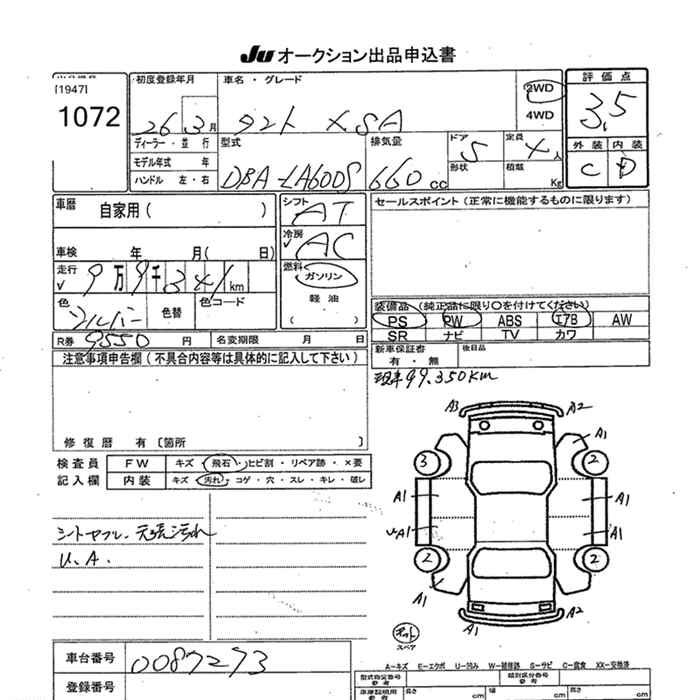 Ju オークション出品申込書
[1947]
1072
初度登録年月
26 3月
車名・グレード
タント X SA
2WD
4WD
評価点
3.5
外装 内装
C D
ディーラー・並行
モデル年式 年
ハンドル 左・右
型式
DBA-LA600S
排気量
660 cc
ドア
5
形状
定員
4人
積載
Kg
車歴 自家用( )
車検 年 月( 日)
走行 9万9千341km
色 シルバー 色替 色コード
R券 9550 円 名変期限 月 日
シフト
AT
冷房
AC
燃料
ガソリン
軽油
( )
セールスポイント(正常に機能するものに限ります)
装備品(純正品に限り○を付けてください)
PS PW ABS エアB AW
SR ナビ TV カワ
新車保証書 後日品
有・無
現車99,350km
注意事項申告欄(不具合内容等は具体的に記入して下さい)
修復歴 有〔箇所 〕
検査員 FW キズ・飛石・ヒビ割・リペア跡・×要
記入欄 内装 キズ・汚れ・コゲ・穴・スレ・キレ・破レ
U.A.
A3 A2
A1 A1
3 2
A1 A1
A1 A1
2 2
A1 A1
A1 A2
スペア
A-キズ E-エクボ U-凹み W-補修跡 S-サビ C-腐食 XX-交換済
車台番号 0087273
登録番号
型式指定番号 参考
類別区分番号 参考
長さ cm 幅 cm 高さ cm